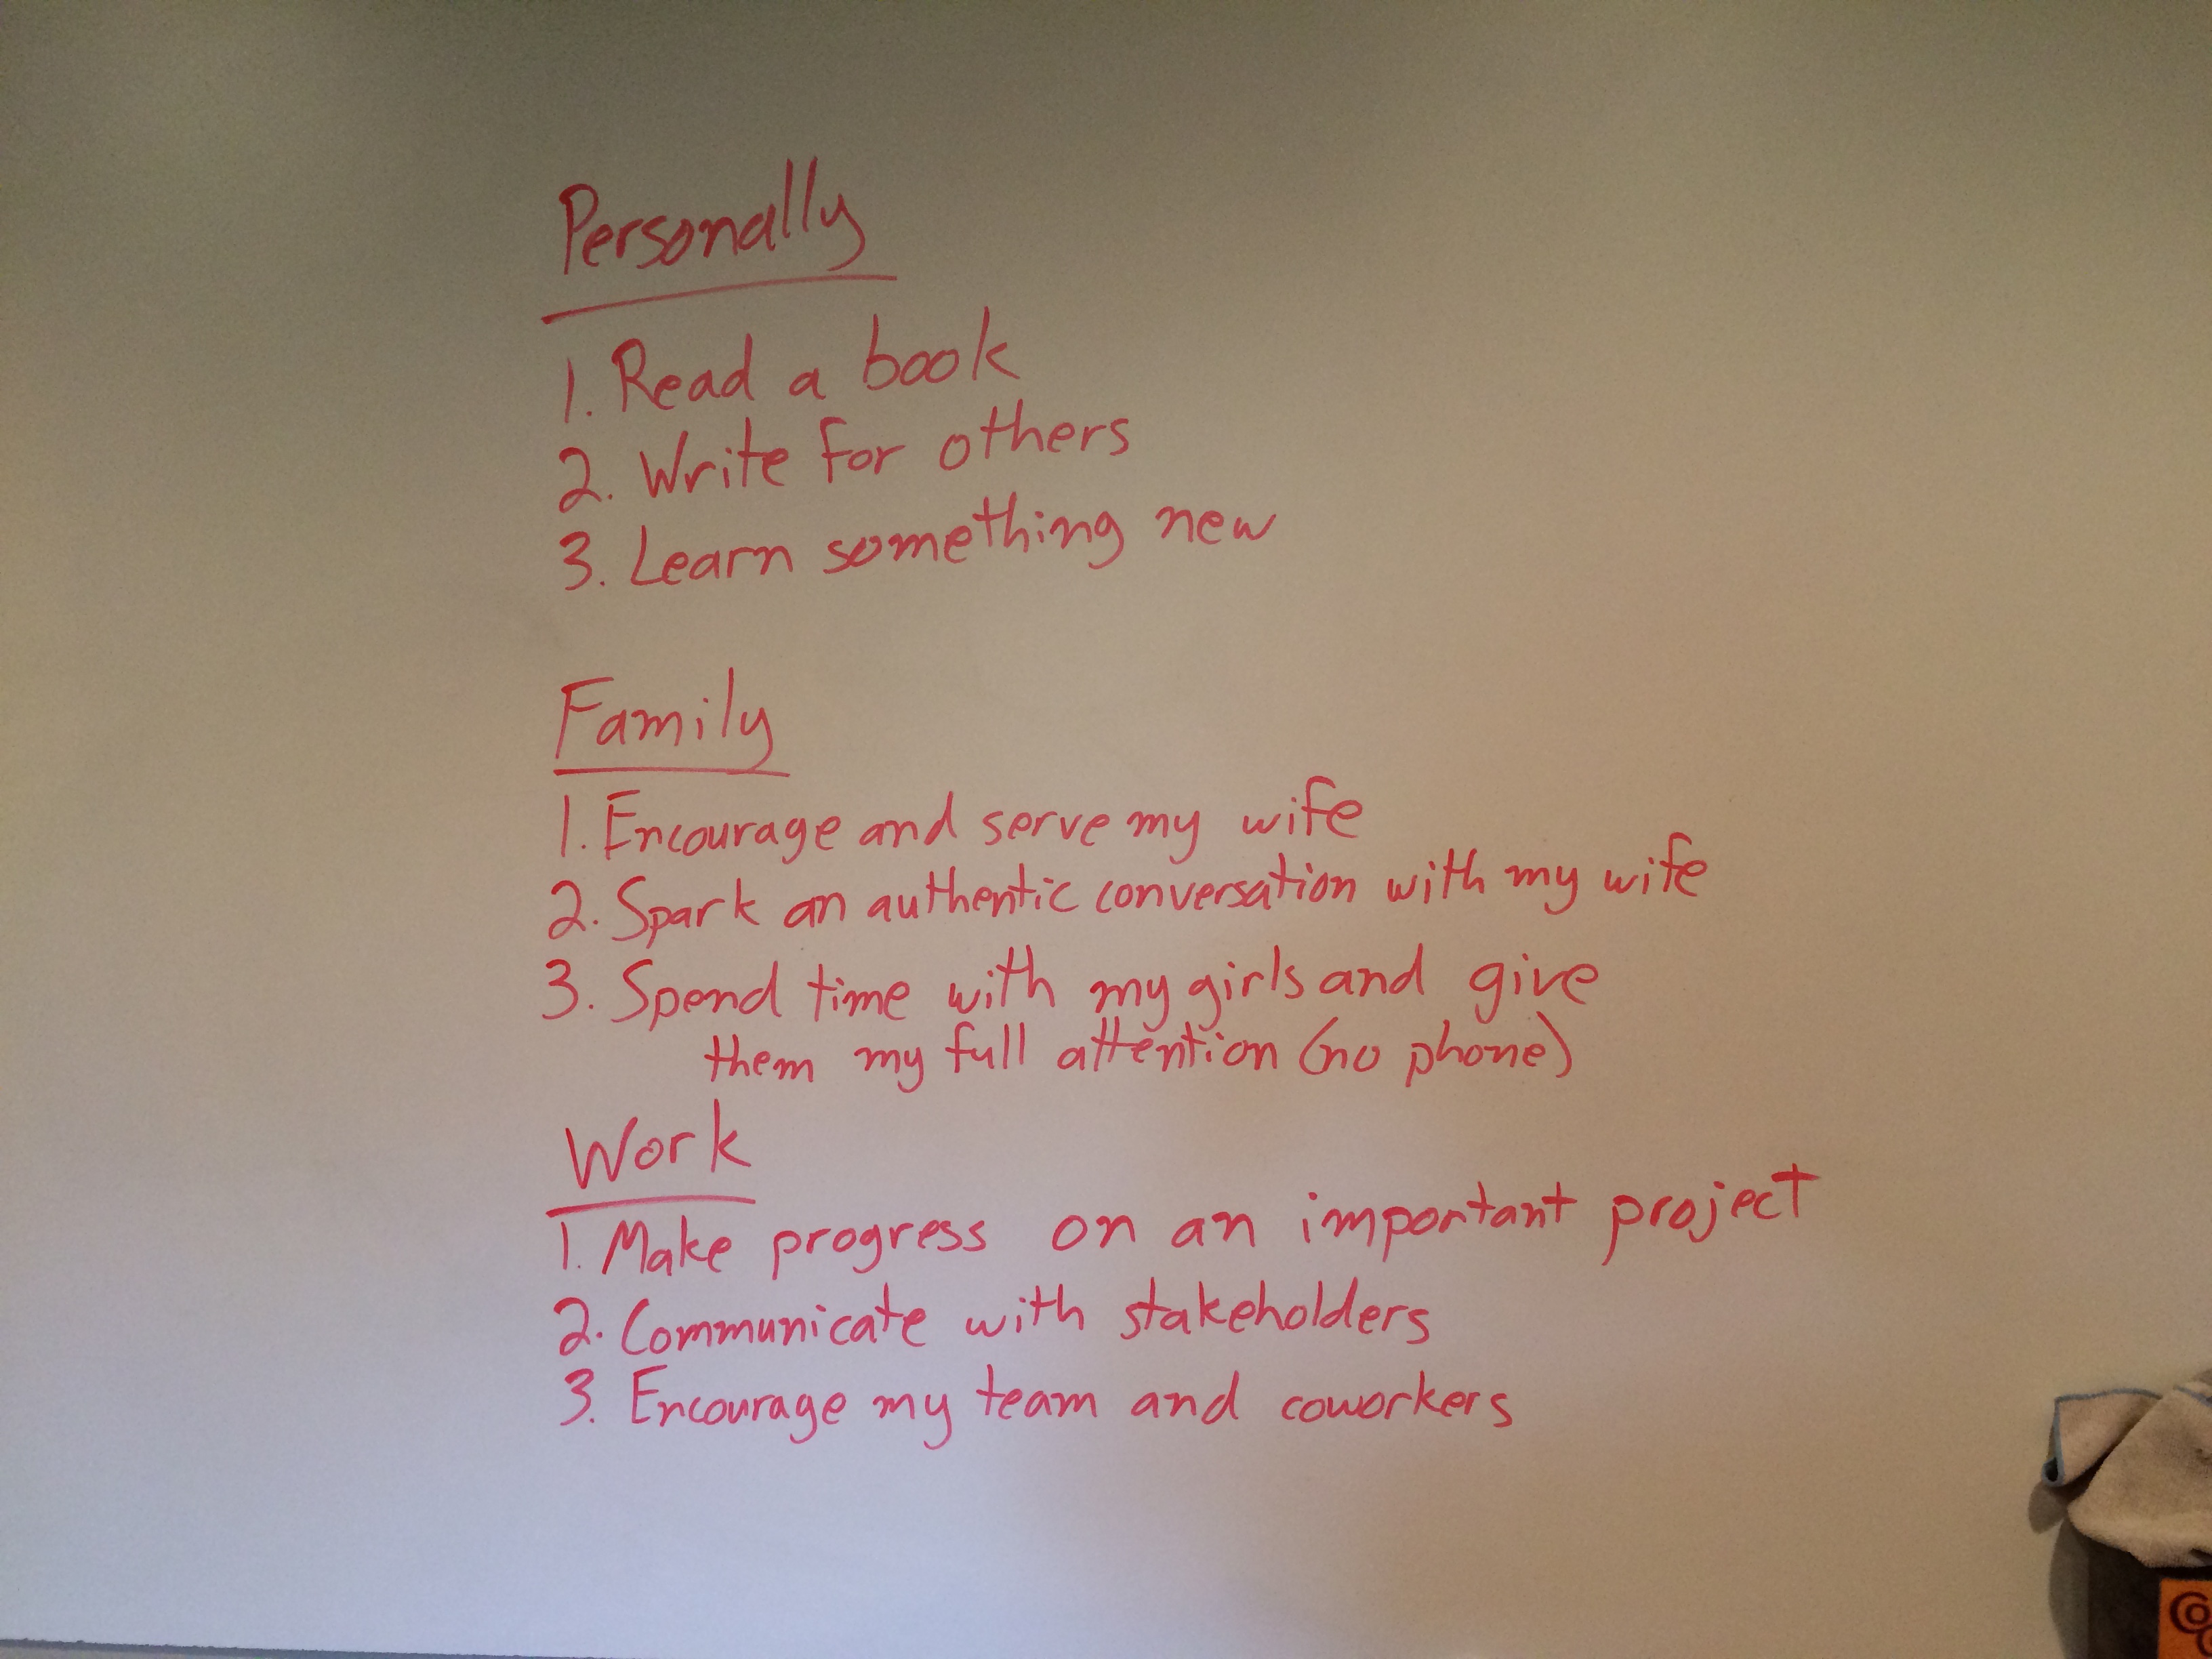 Personally
1. Read a book
2. Write for others
3. Learn something new
Family
1. Encourage and serve my wife
2. Spark an authentic conversation with my wife
3. Spend time with my girls and give
them my full attention (no phone)
Work
1. Make progress on an important project
2. Communicate with stakeholders
3. Encourage my team and coworkers